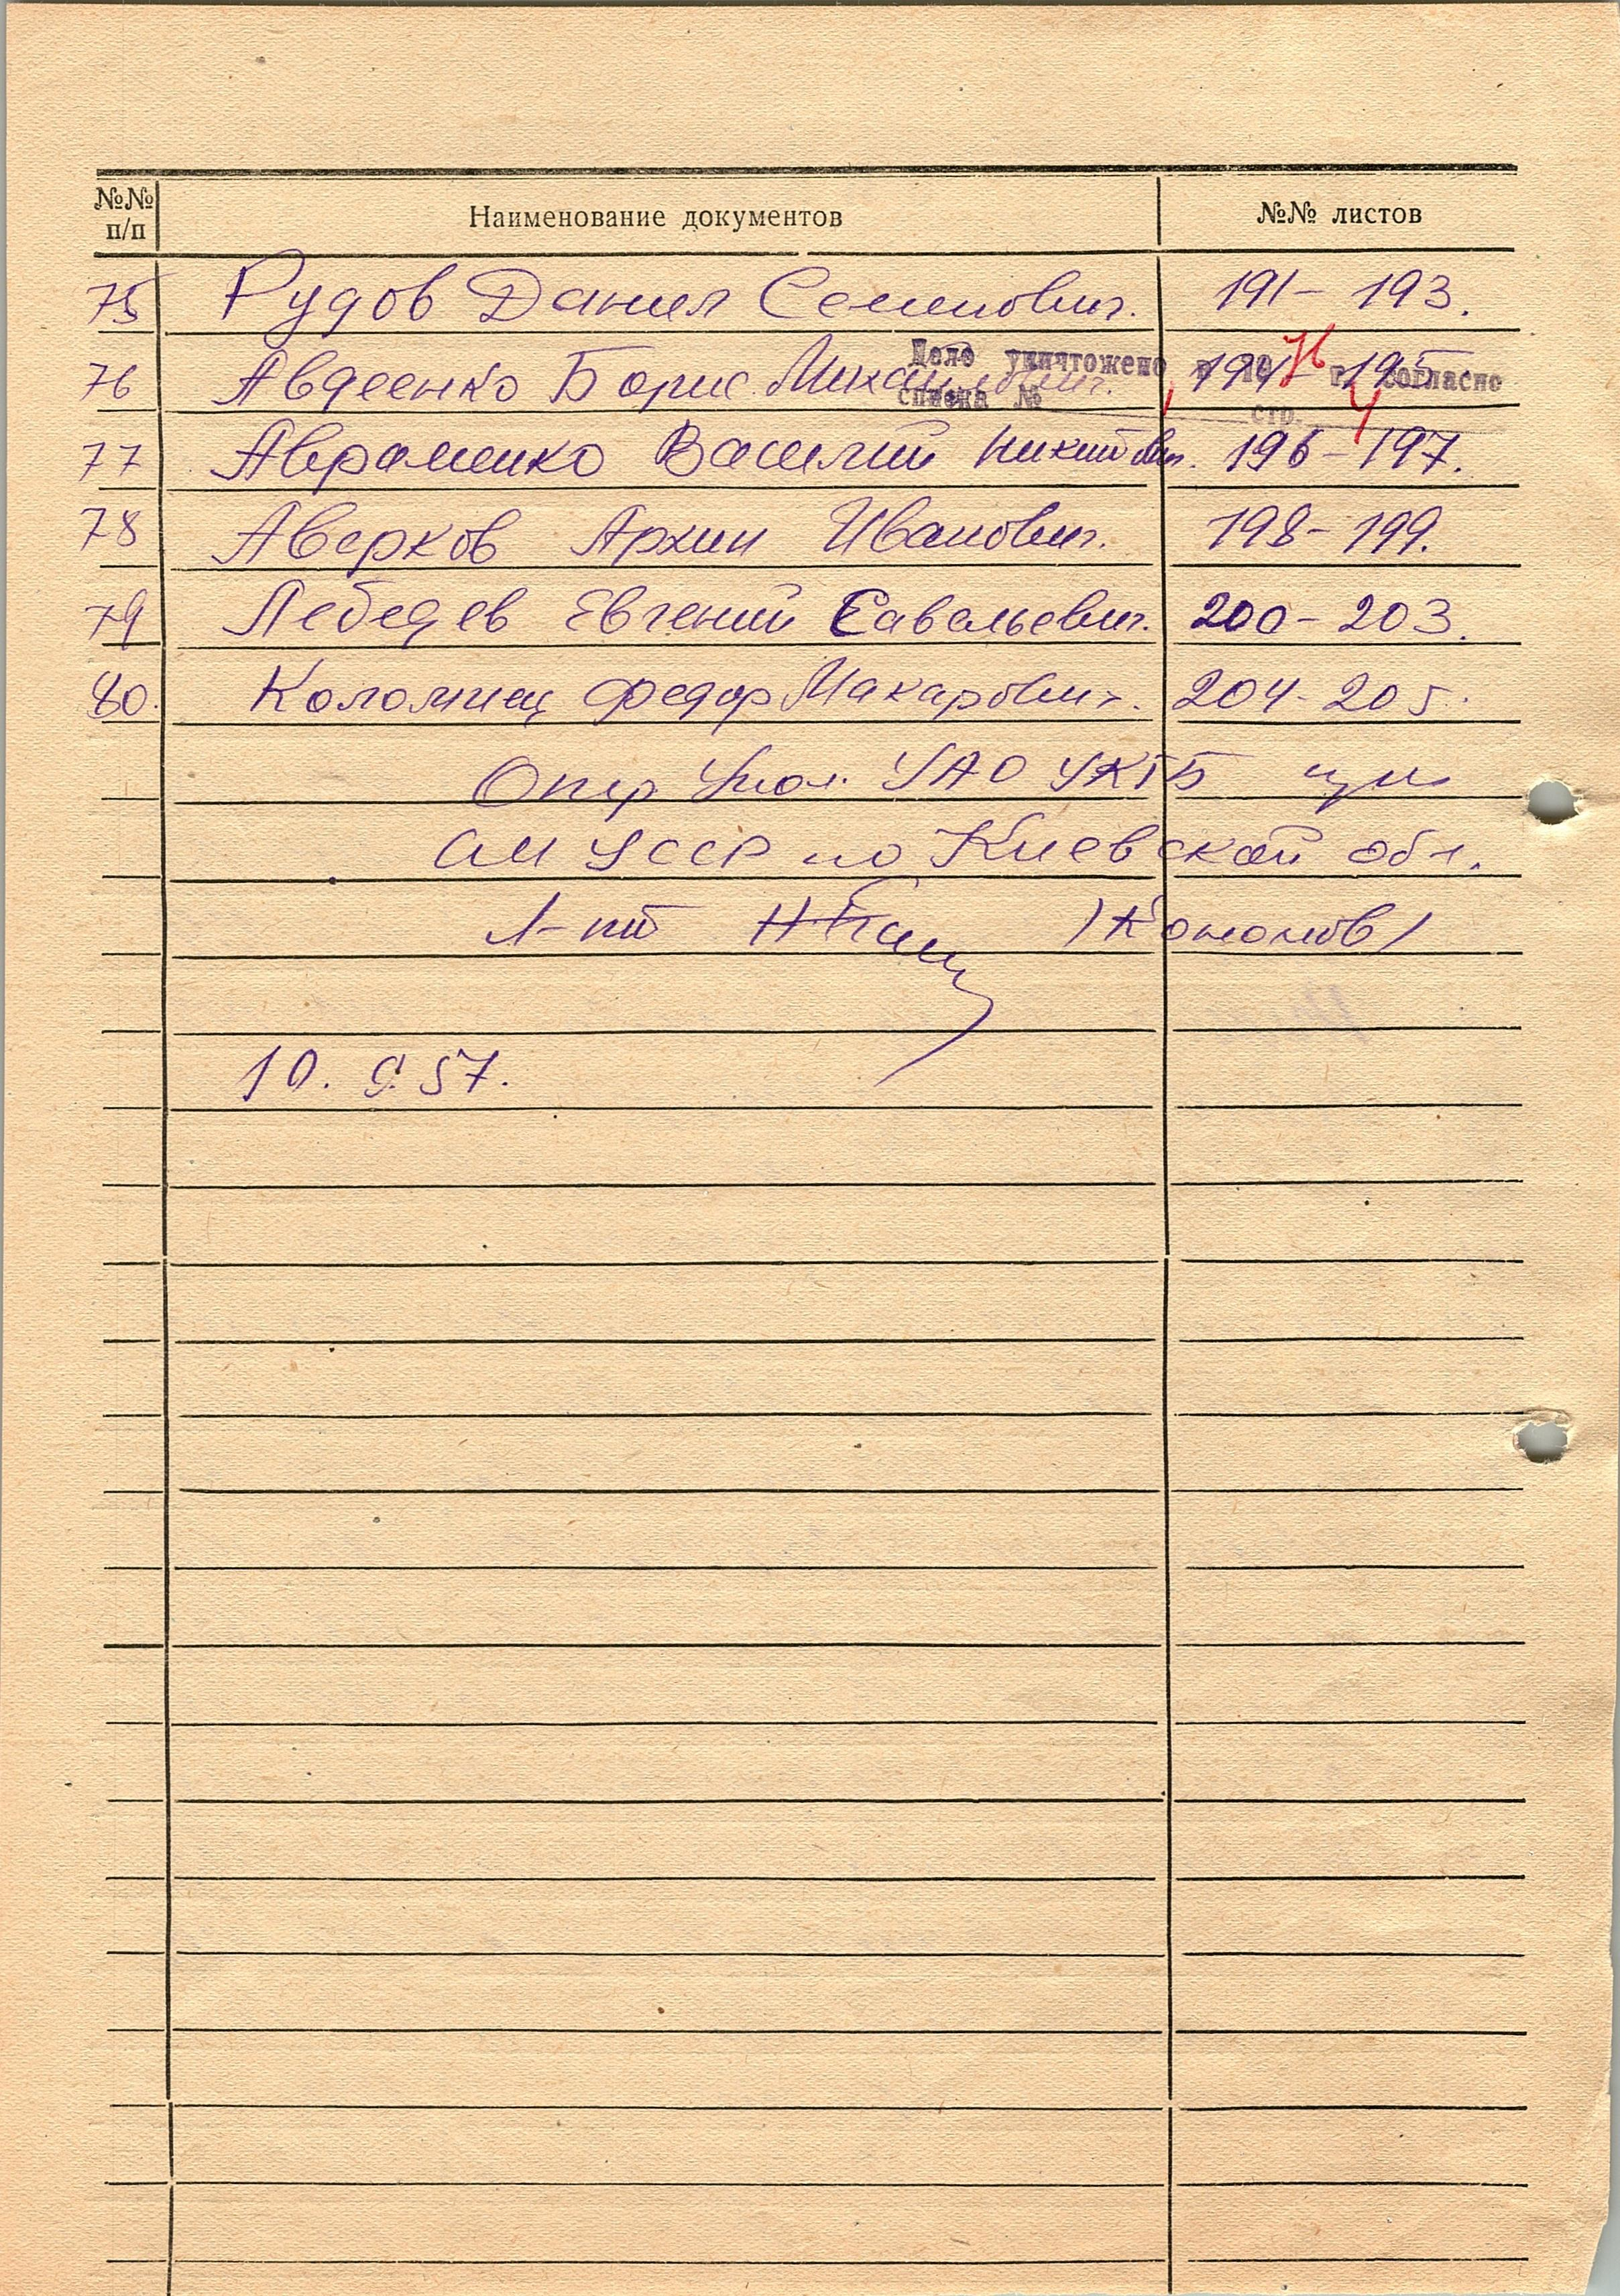 №№ п/п Наименование документов №№ листов
75 Рудов Данил Семенович. 191 - 193.
76 Авдеенко Борис Михайлович. 194 - 195.
Дело уничтожено в 19 г. согласно
списка № 1 стр. 4
77 Авраменко Василий Никитович. 196 - 197.
78 Аверков Архип Иванович. 198 - 199.
79 Лебедев Евгений Савельевич. 200 - 203.
80. Коломиец Федор Макарович. 204 - 205.
Опер Упол. УАО УКГБ при
СМ УССР по Киевской обл.
Л-нт /Кононов/
10. 9. 57.